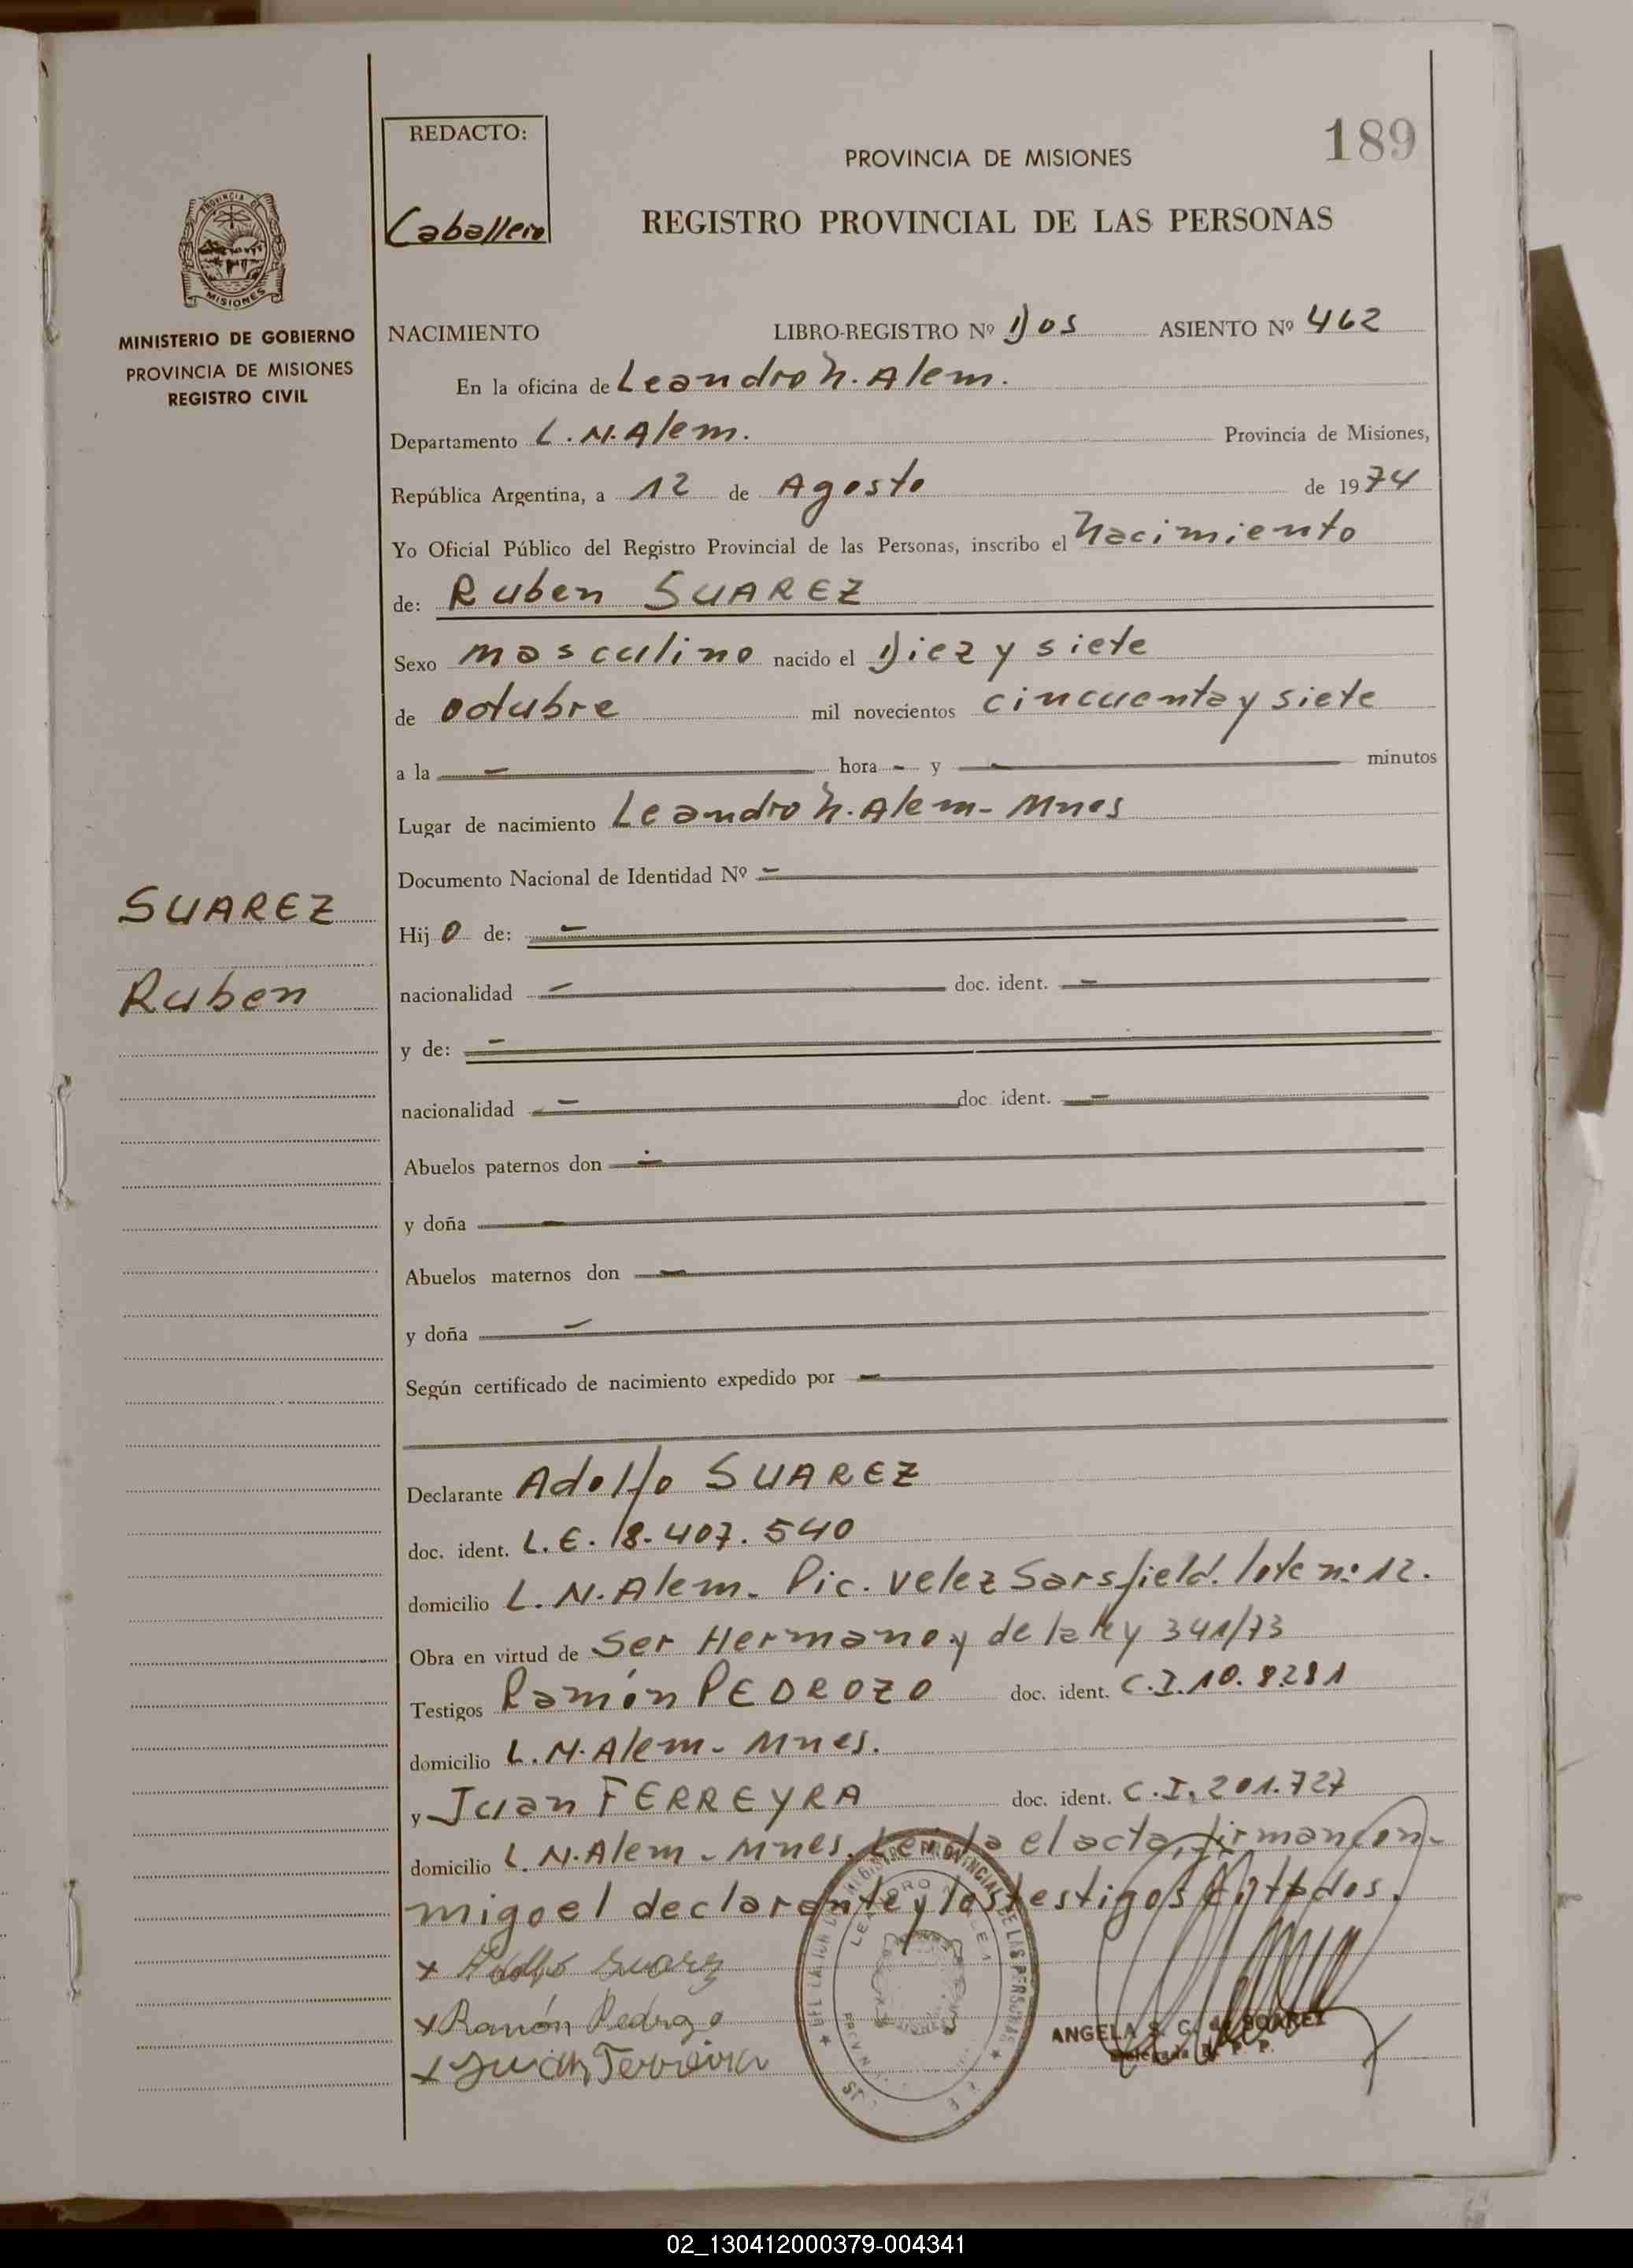 189
REDACTO:
Caballero
PROVINCIA DE MISIONES
REGISTRO PROVINCIAL DE LAS PERSONAS
PROVINCIA DE
MISIONES
MINISTERIO DE GOBIERNO
PROVINCIA DE MISIONES
REGISTRO CIVIL
NACIMIENTO LIBRO-REGISTRO Nº Dos ASIENTO Nº 462
En la oficina de Leandro N. Alem.
Departamento L. N. Alem. Provincia de Misiones,
República Argentina, a 12 de Agosto de 1974
Yo Oficial Público del Registro Provincial de las Personas, inscribo el Nacimiento
de: Ruben SUAREZ
Sexo masculino nacido el Diez y siete
de octubre mil novecientos cincuenta y siete
a la - hora - y - minutos
Lugar de nacimiento Leandro N. Alem - Mnes
Documento Nacional de Identidad Nº -
SUAREZ
Hijo de: -
Ruben
nacionalidad - doc. ident. -
y de: -
nacionalidad - doc. ident. -
Abuelos paternos don -
y doña -
Abuelos maternos don -
y doña -
Según certificado de nacimiento expedido por -
Declarante Adolfo SUAREZ
doc. ident. L. E. 18.407.540
domicilio L. N. Alem - Pic. Velez Sarsfield. lote nº 12.
Obra en virtud de Ser Hermano y de la ley 341/73
Testigos Ramón PEDROZO doc. ident. C.I. 10.8281
domicilio L. N. Alem - Mnes.
y Juan FERREYRA doc. ident. C.I. 201.727
domicilio L. N. Alem - Mnes. Leida el acta, firman con-
migo el declarante y los testigos citados.
x Adolfo Suarez
x Ramón Pedrozo
x Juan Ferreira
LEANDRO N. ALEM
PROVINCIAL DE LAS PERSONAS
ANGELA S. C. de SUAREZ
Delegada R. P. P.
02_130412000379-004341